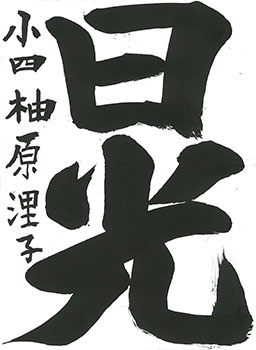 日光
小四 柚原浬子